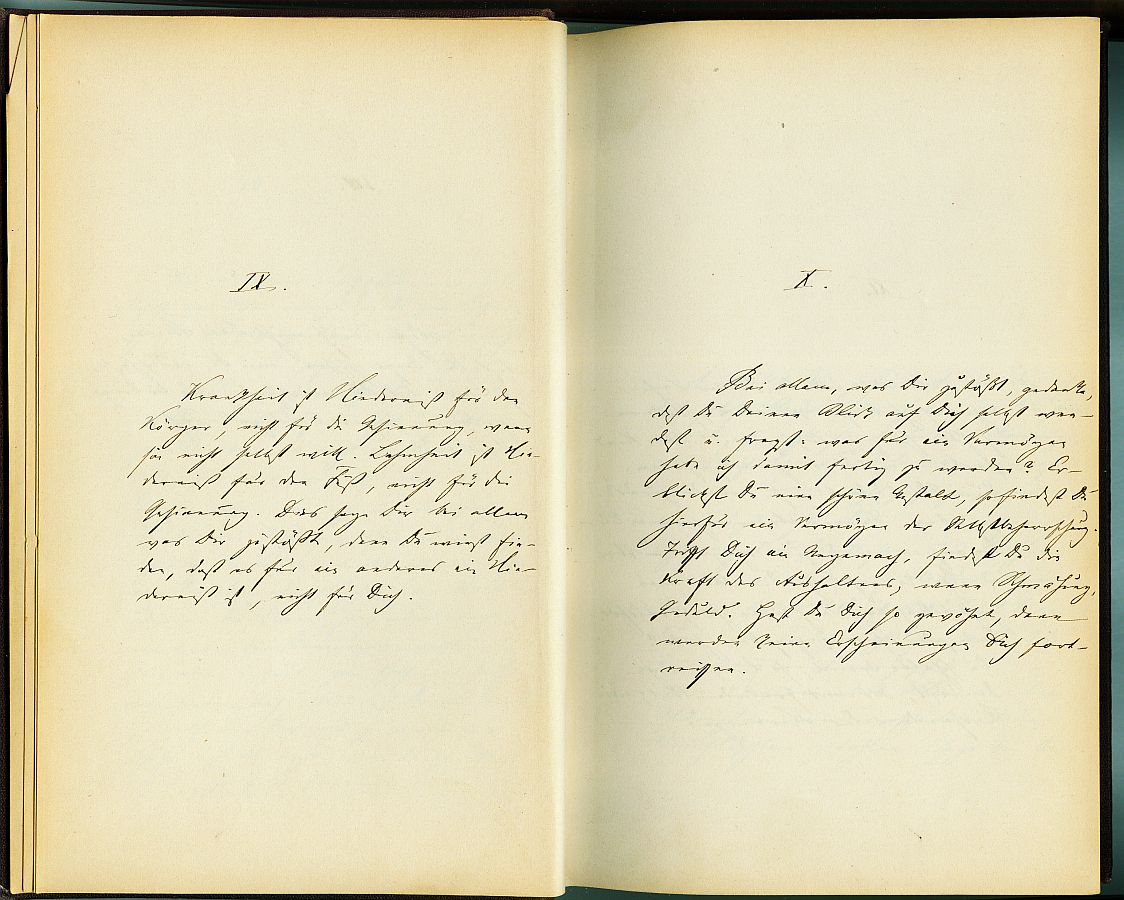 IX.
Krankheit ist Hinderniß für den
Körper, nicht für die Gesinnung, wenn
sie nicht selbst will. Lahmheit ist Hin-
derniß für den Fuß, nicht für die
Gesinnung. Dies sage Dir bei allem
was Dir zustößt, denn Du wirst fin-
den, daß es für ein anderes ein Hin-
derniß ist, nicht für Dich.
X.
Bei allem, was Dir zustößt, gedenke,
daß Du Deinen Blick auf Dich selbst wen-
dest u. fragst: was für ein Vermögen
habe ich damit fertig zu werden? Er-
blickst Du eine schöne Gestalt, so findest Du
hierfür ein Vermögen der Selbstbeherrschung.
Trifft Dich ein Ungemach, findest Du die
Kraft des Aushaltens, wenn Schmähung,
Geduld. Hast Du Dich so gewöhnt, dann
werden keine Erscheinungen Dich fort-
reißen.